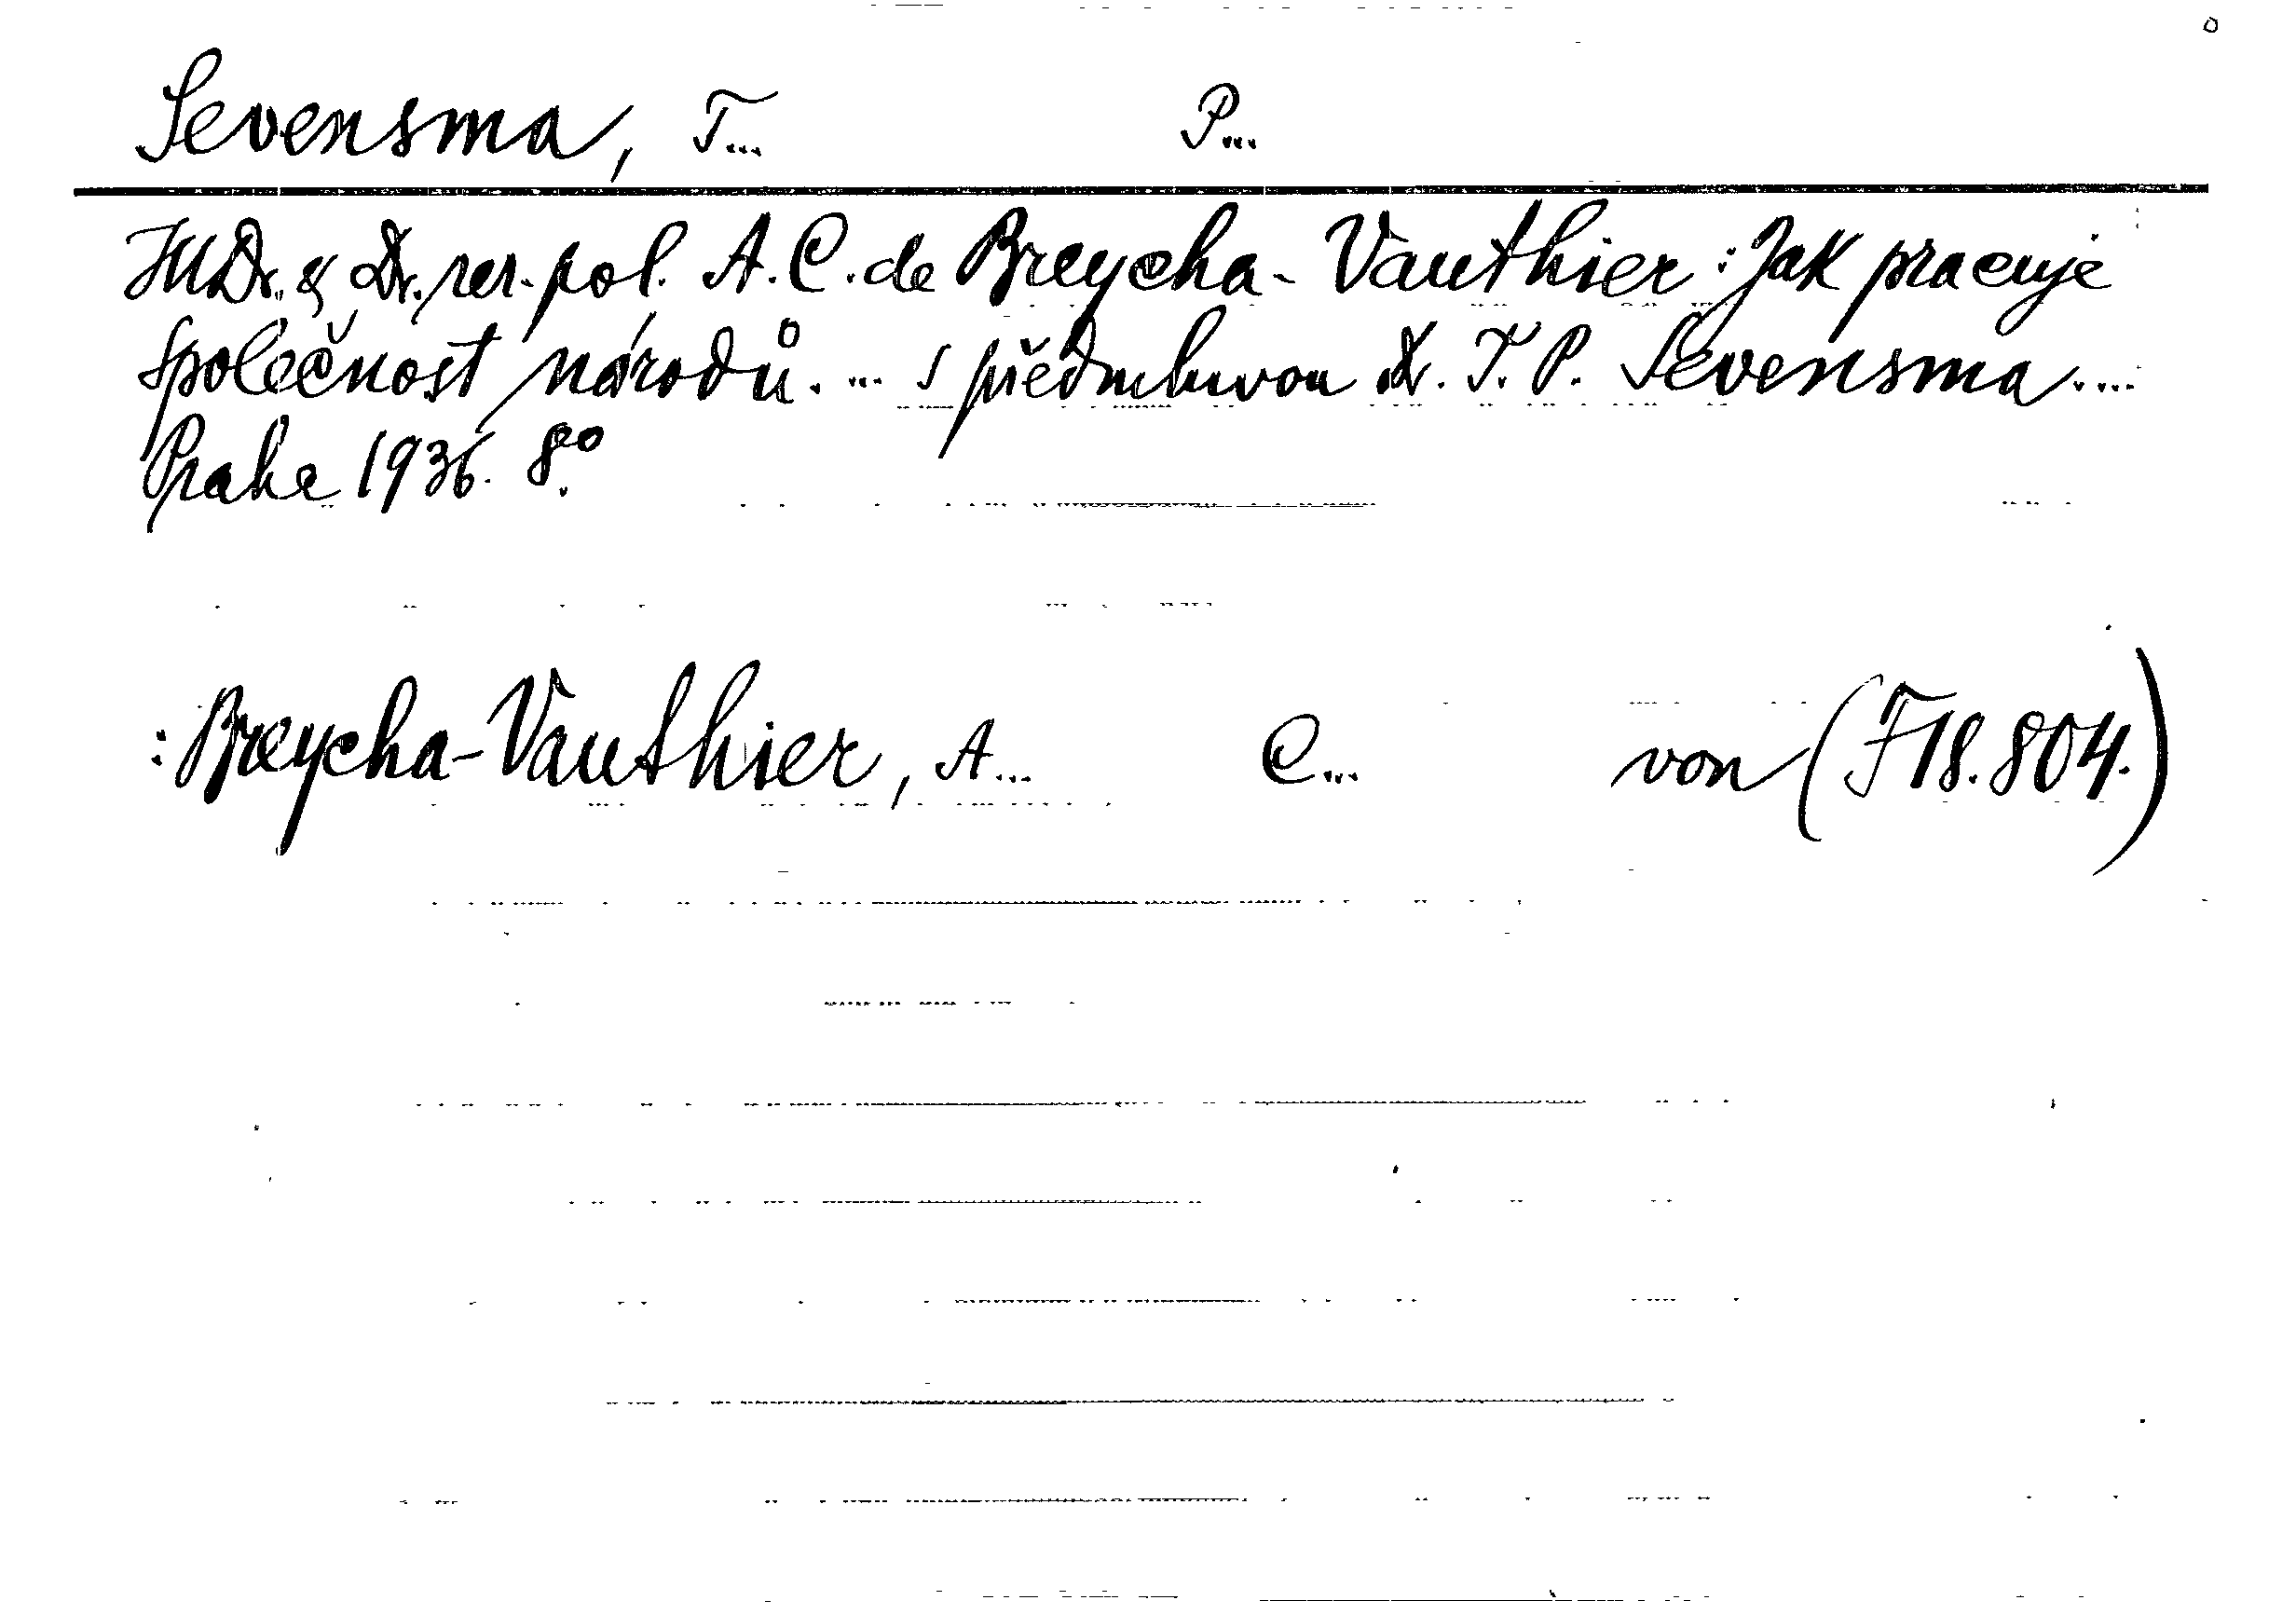 Sevensma, T... P...
JUDr. & Dr. rer. pol. A. C. de Breycha-Vauthier: Jak pracuje
Společnost národů. ... s předmluvou Dr. T. P. Sevensma....
Praha 1936. 8°.
: Breycha-Vauthier, A... C... von (F 18.804.)